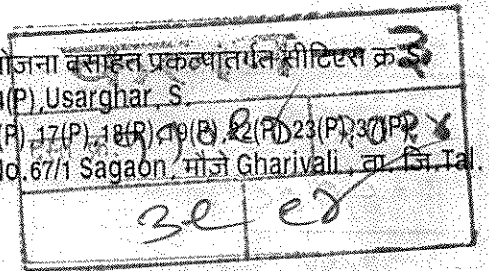 योजना वसाहत प्रकल्पांतर्गत सीटिएस क्र. S.
(P),Usarghar, S.
(P),17(P),18(P),19(P),22(P),23(P),37(P),
No.67/1 Sagaon, मौजे Gharivali , ता. जि.Tal.
३९ ९४